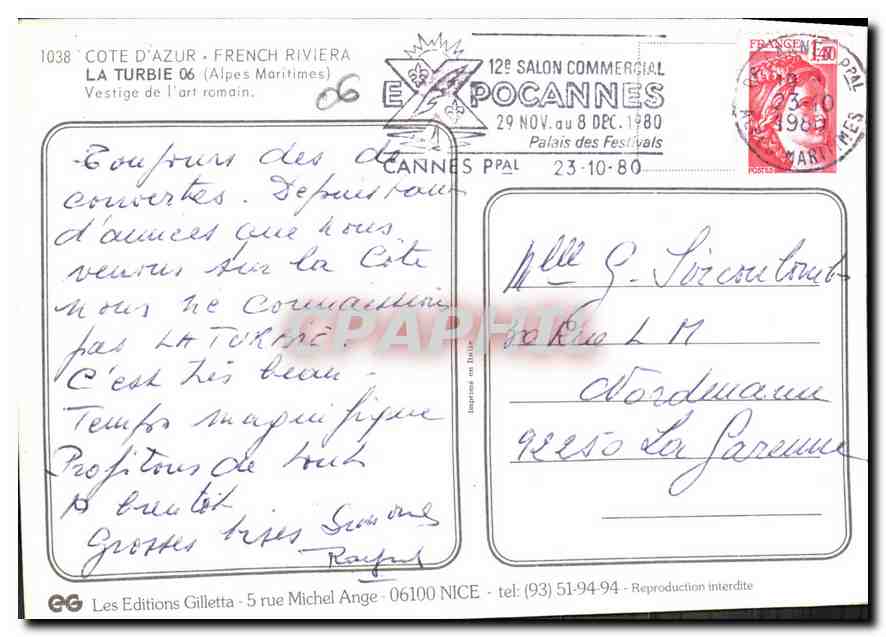 1038 COTE D'AZUR - FRENCH RIVIERA
LA TURBIE 06 (Alpes Maritimes)
Vestige de l'art romain.
06
12e SALON COMMERCIAL
EXPOCANNES
29 NOV. au 8 DEC. 1980
Palais des Festivals
CANNES PPAL 23-10-80
FRANCE 1,40
PPAL
23-10
1980
MARITIMES
POSTES
Toujours des dé
couvertes. Depuis tant
d'années que nous
venons sur la Côte
nous ne connaissions
pas LA TURBIE.
C'est très beau -
Temps magnifique
Profitons de tout
A bientôt
Grosses bises
Mlle G.
Rue L M
Nordmann
92250 La Garenne
Imprimé en Italie
CPAPHIL
EG Les Editions Gilletta - 5 rue Michel Ange - 06100 NICE - tel: (93) 51-94-94 - Reproduction interdite